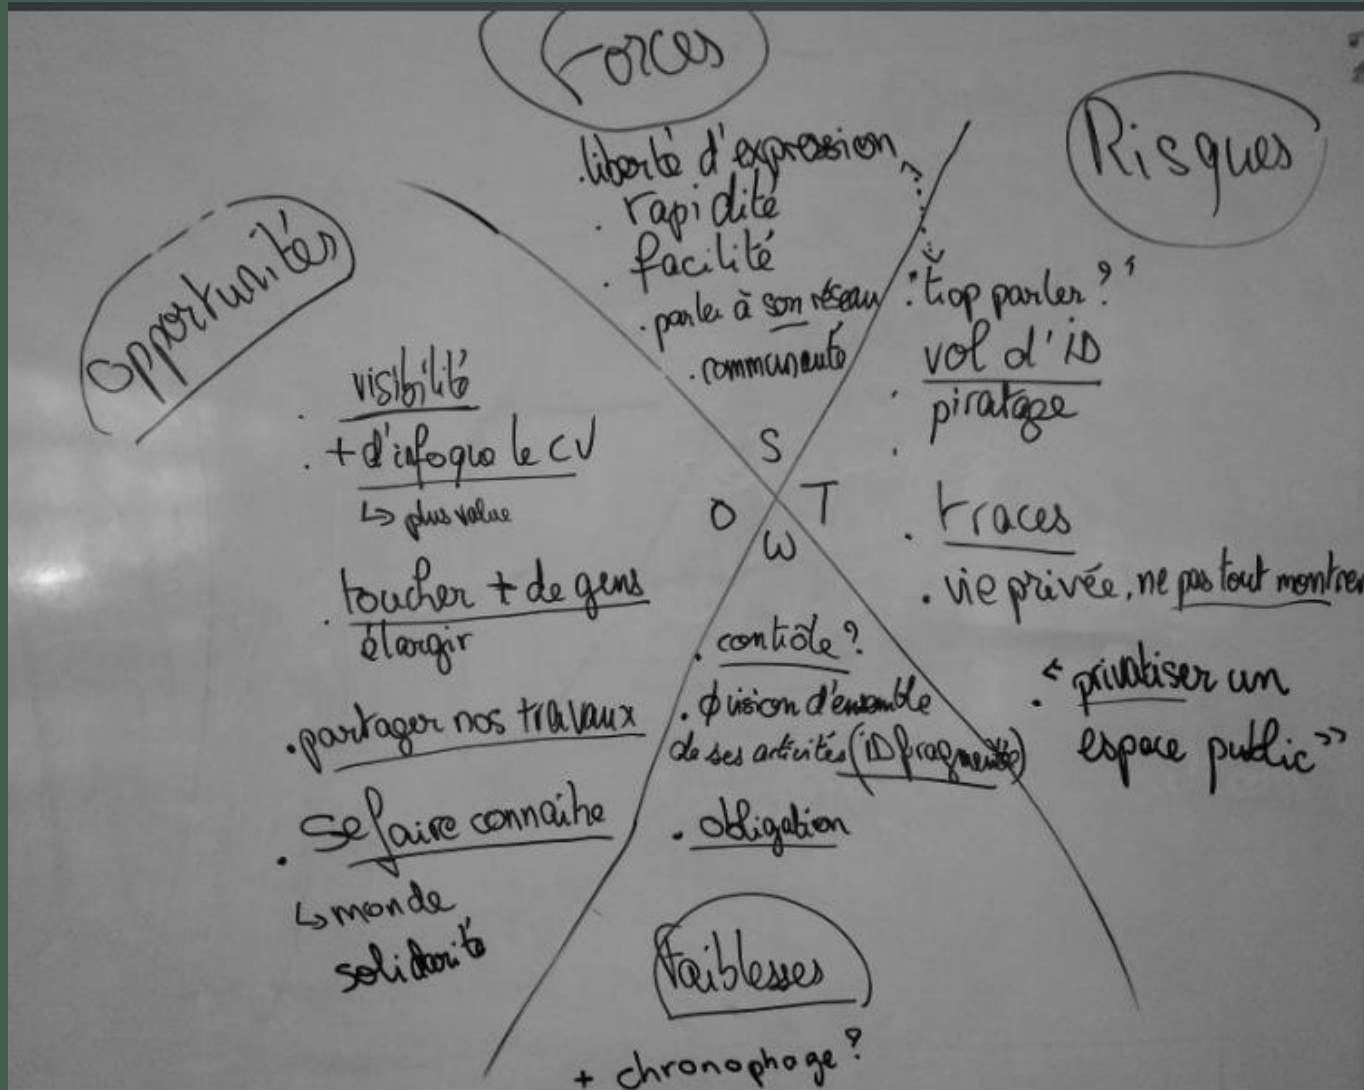 Forces
.liberté d'expression
. rapidité
. facilité
. parler à son réseau
. communauté
Risques
. "trop parler?"
. vol d'iD
. piratage
. traces
. vie privée, ne pas tout montrer
. "privatiser un
espace public"
Opportunités
. visibilité
. + d'info que le CV
↳ plus value
. toucher + de gens
élargir
. partager nos travaux
. se faire connaître
↳ monde
solidarité
S
O T
W
. contrôle?
. ϕ vision d'ensemble
de ses activités (iD fragmentée)
. obligation
Faiblesses
+ chronophage?